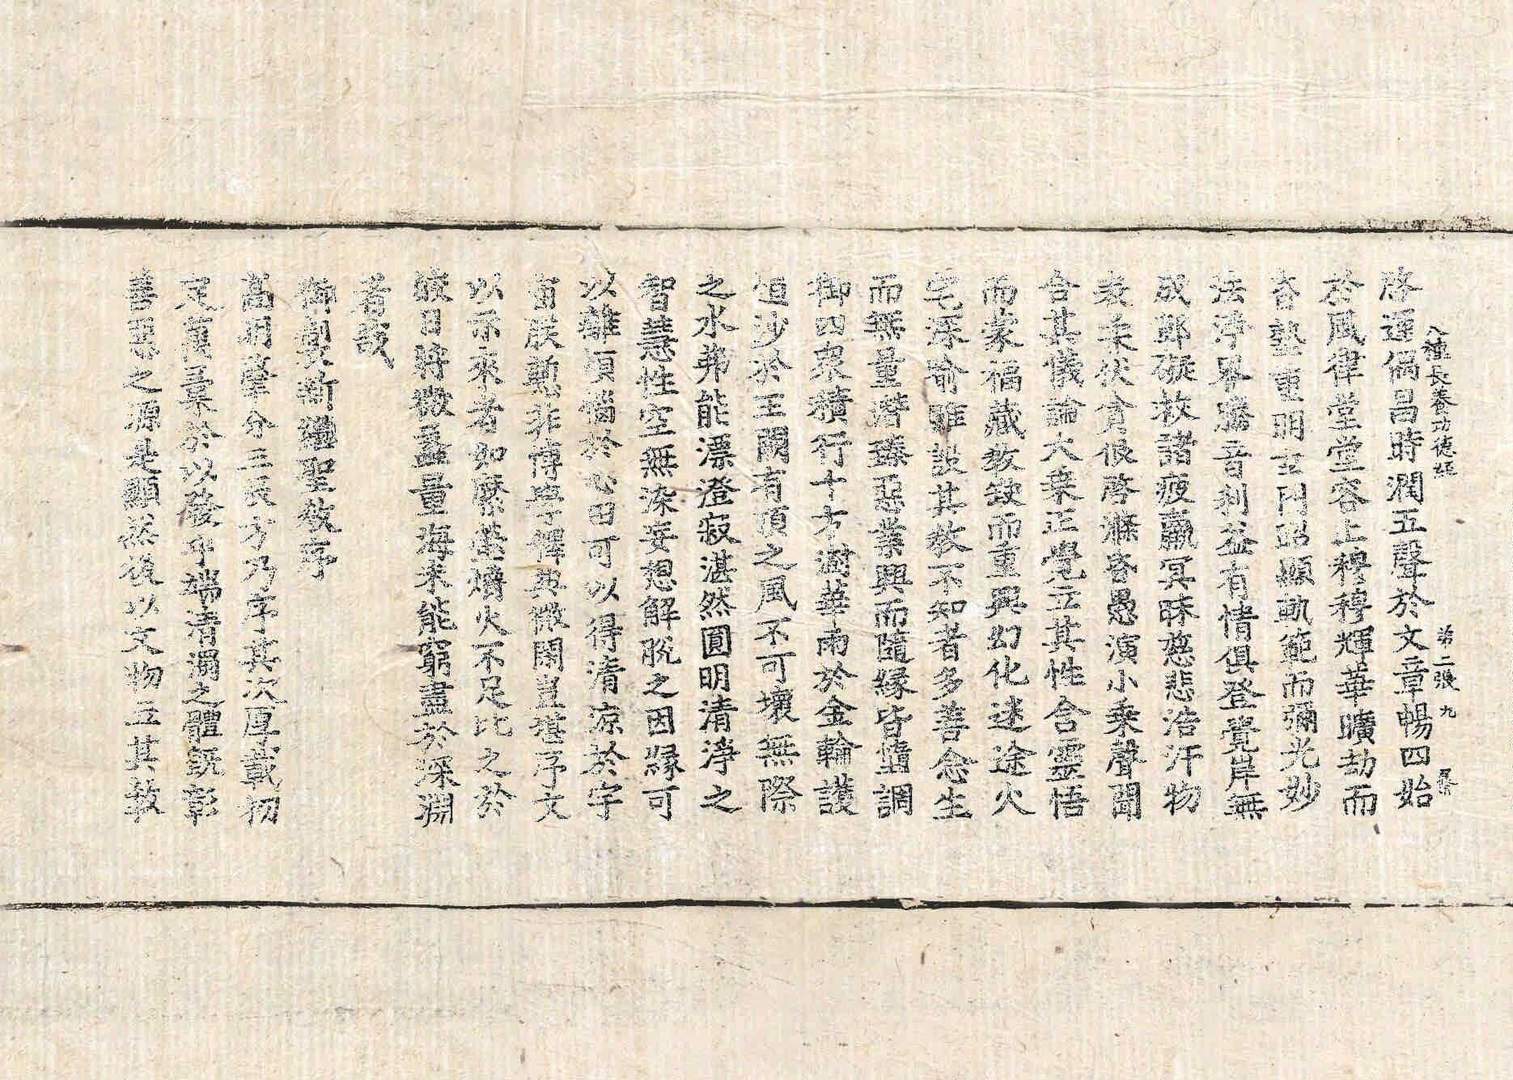 八種長養功德經 第二張 九
啓運偶昌時潤五聲於文章暢四始
於風律堂堂容止穆穆輝華曠劫而
昏墊重明玄門昭顯軌範而彌光妙
法淨界騰音利益有情俱登覺岸無
成郢礙救諸疲羸冥昧慈悲浩汗物
表柔伏貪佷啓滌昏愚演小乘聲聞
合其儀論大乘正覺立其性含靈悟
而蒙福藏教缺而重興幻化迷途火
宅深喻雖設其教不知者多善念生
而無量潜臻惡業興而隨緣皆墮調
御四衆積行十方澍華雨於金輪護
恒沙於玉闕有頂之風不可壞無際
之水弗能漂澄寂湛然圓明清淨之
智慧性空無染妄想解脫之因緣可
以離煩惱於心田可以得清涼於宇
宙朕慙非博學釋典微閑豈堪序文
以示來者如縻螢爝火不足比之於
皎日將微蠡量海未能窮盡於深淵
者哉
御製新繼聖教序
高明肇分三辰方乃序其次厚載初
定萬彙於以發乎端清濁之體旣彰
善惡之源是顯然後以文物立其教